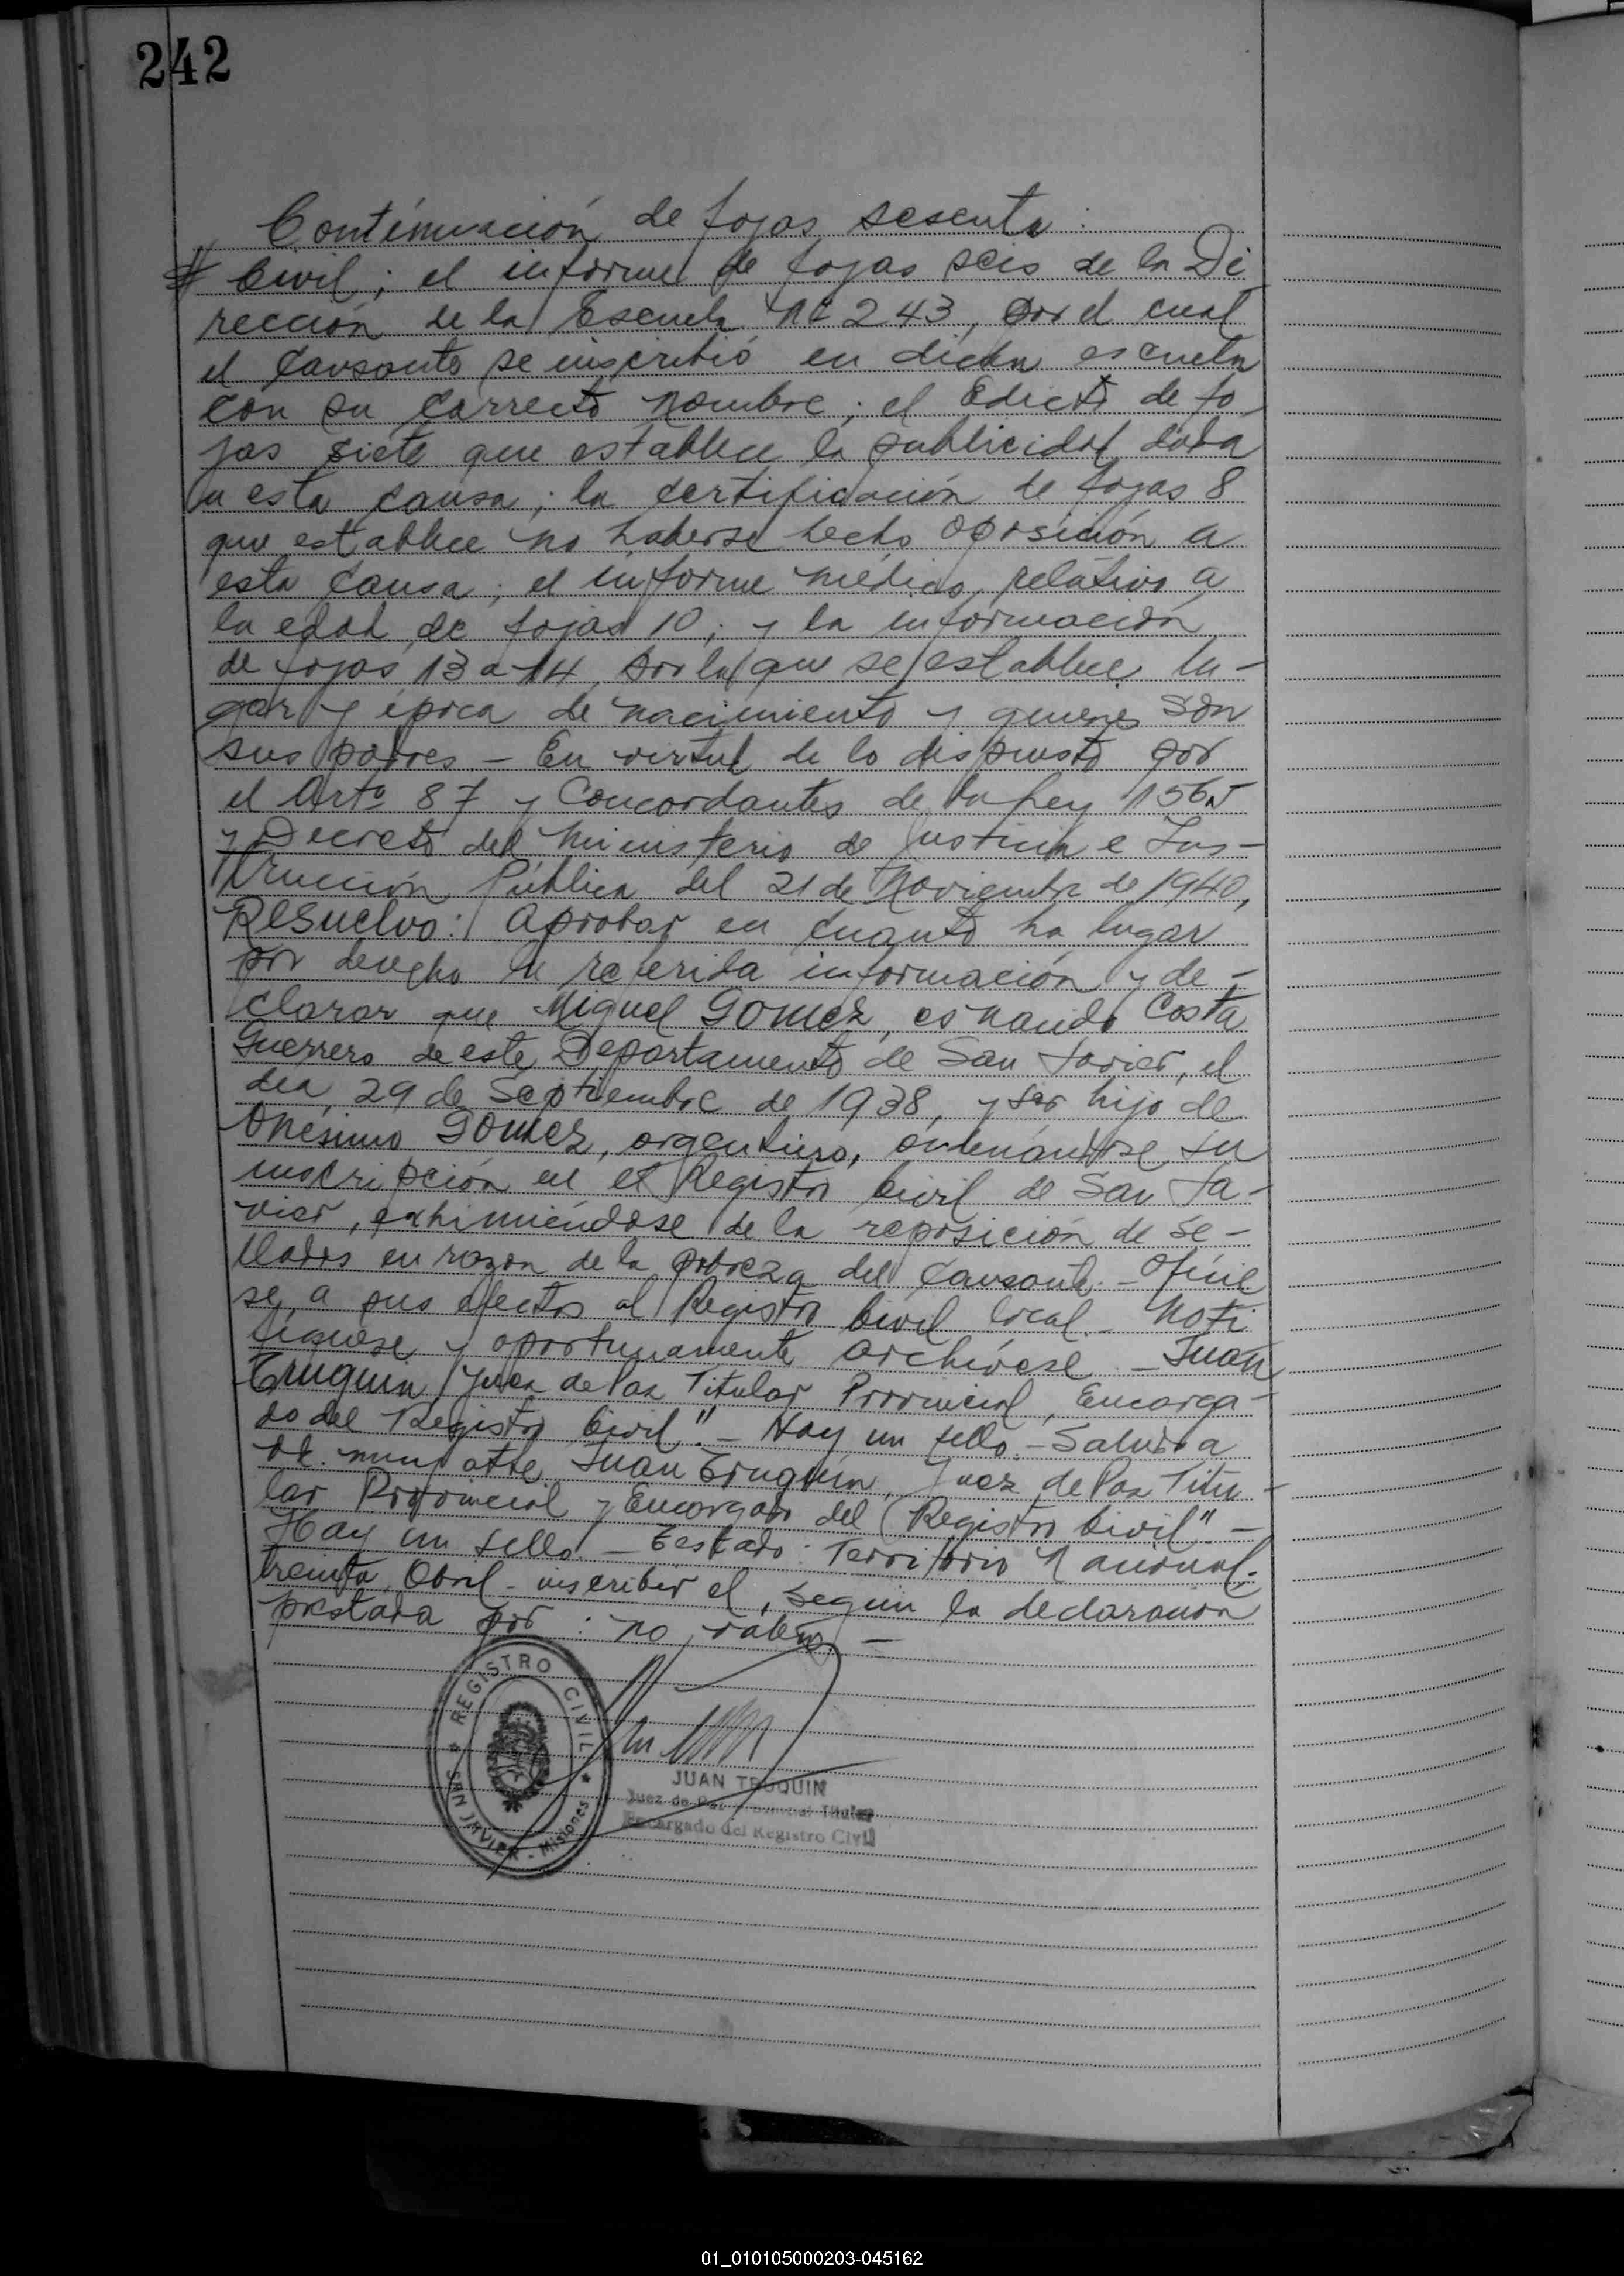 242
Continuación de fojas sesenta:
# Civil; el informe de fojas seis de la Di
rección de la Escuela Nº 243, por el cual
el causante se inscribió en dicha escuela
con su correcto nombre; el Edicto de fo-
jas siete que establece la publicidad dada
a esta causa; la certificación de fojas 8
que establece no haberse hecho oposición a
esta causa; el informe médico, relativo a
la edad de fojas 10; y la información
de fojas 13 a 14, por la que se establece lu-
gar y época de nacimiento y quienes son
sus padres. - En virtud de lo dispuesto por
el Artº 87 y Concordantes de la Ley 1565
y Decreto del Ministerio de Justicia e Ins-
trucción Pública del 21 de Noviembre de 1940,
Resuelvo: Aprobar en cuanto ha lugar
por derecho la referida información y de-
clarar que Miguel Gomez, es nacido Costa
Guerrero de este Departamento de San Javier, el
día 29 de Septiembre de 1938, y ser hijo de
Onésimo Gomez, argentino, ordenándose su
inscripción en el Registro Civil de San Ja-
vier, eximiéndose de la reposición de se-
llados en razon de la pobreza del causante. - Ofície
se, a sus efectos al Registro Civil local. - Noti
fíquese y oportunamente archívese. - Juan
Truquin Juez de Paz Titular Provincial, Encarga-
do del Registro Civil". - Hay un sello. - Saluda a
Ud. muy atte. Juan Truquin, Juez de Paz Titu-
lar Provincial y Encargado del Registro Civil" -
Hay un sello. - Testado: Territorio Nacional.
treinta. Obrel - inscribir el, según la declaración
prestada por: no valen. -
REGISTRO CIVIL
SAN JAVIER - Misiones
JUAN TRUQUIN
Juez de Paz Provincial Titular
Encargado del Registro Civil
01_010105000203-045162